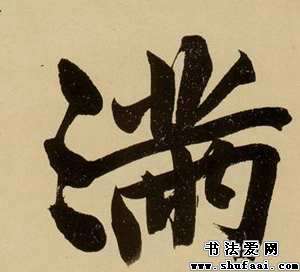 满
书法爱网
www.shufaai.com